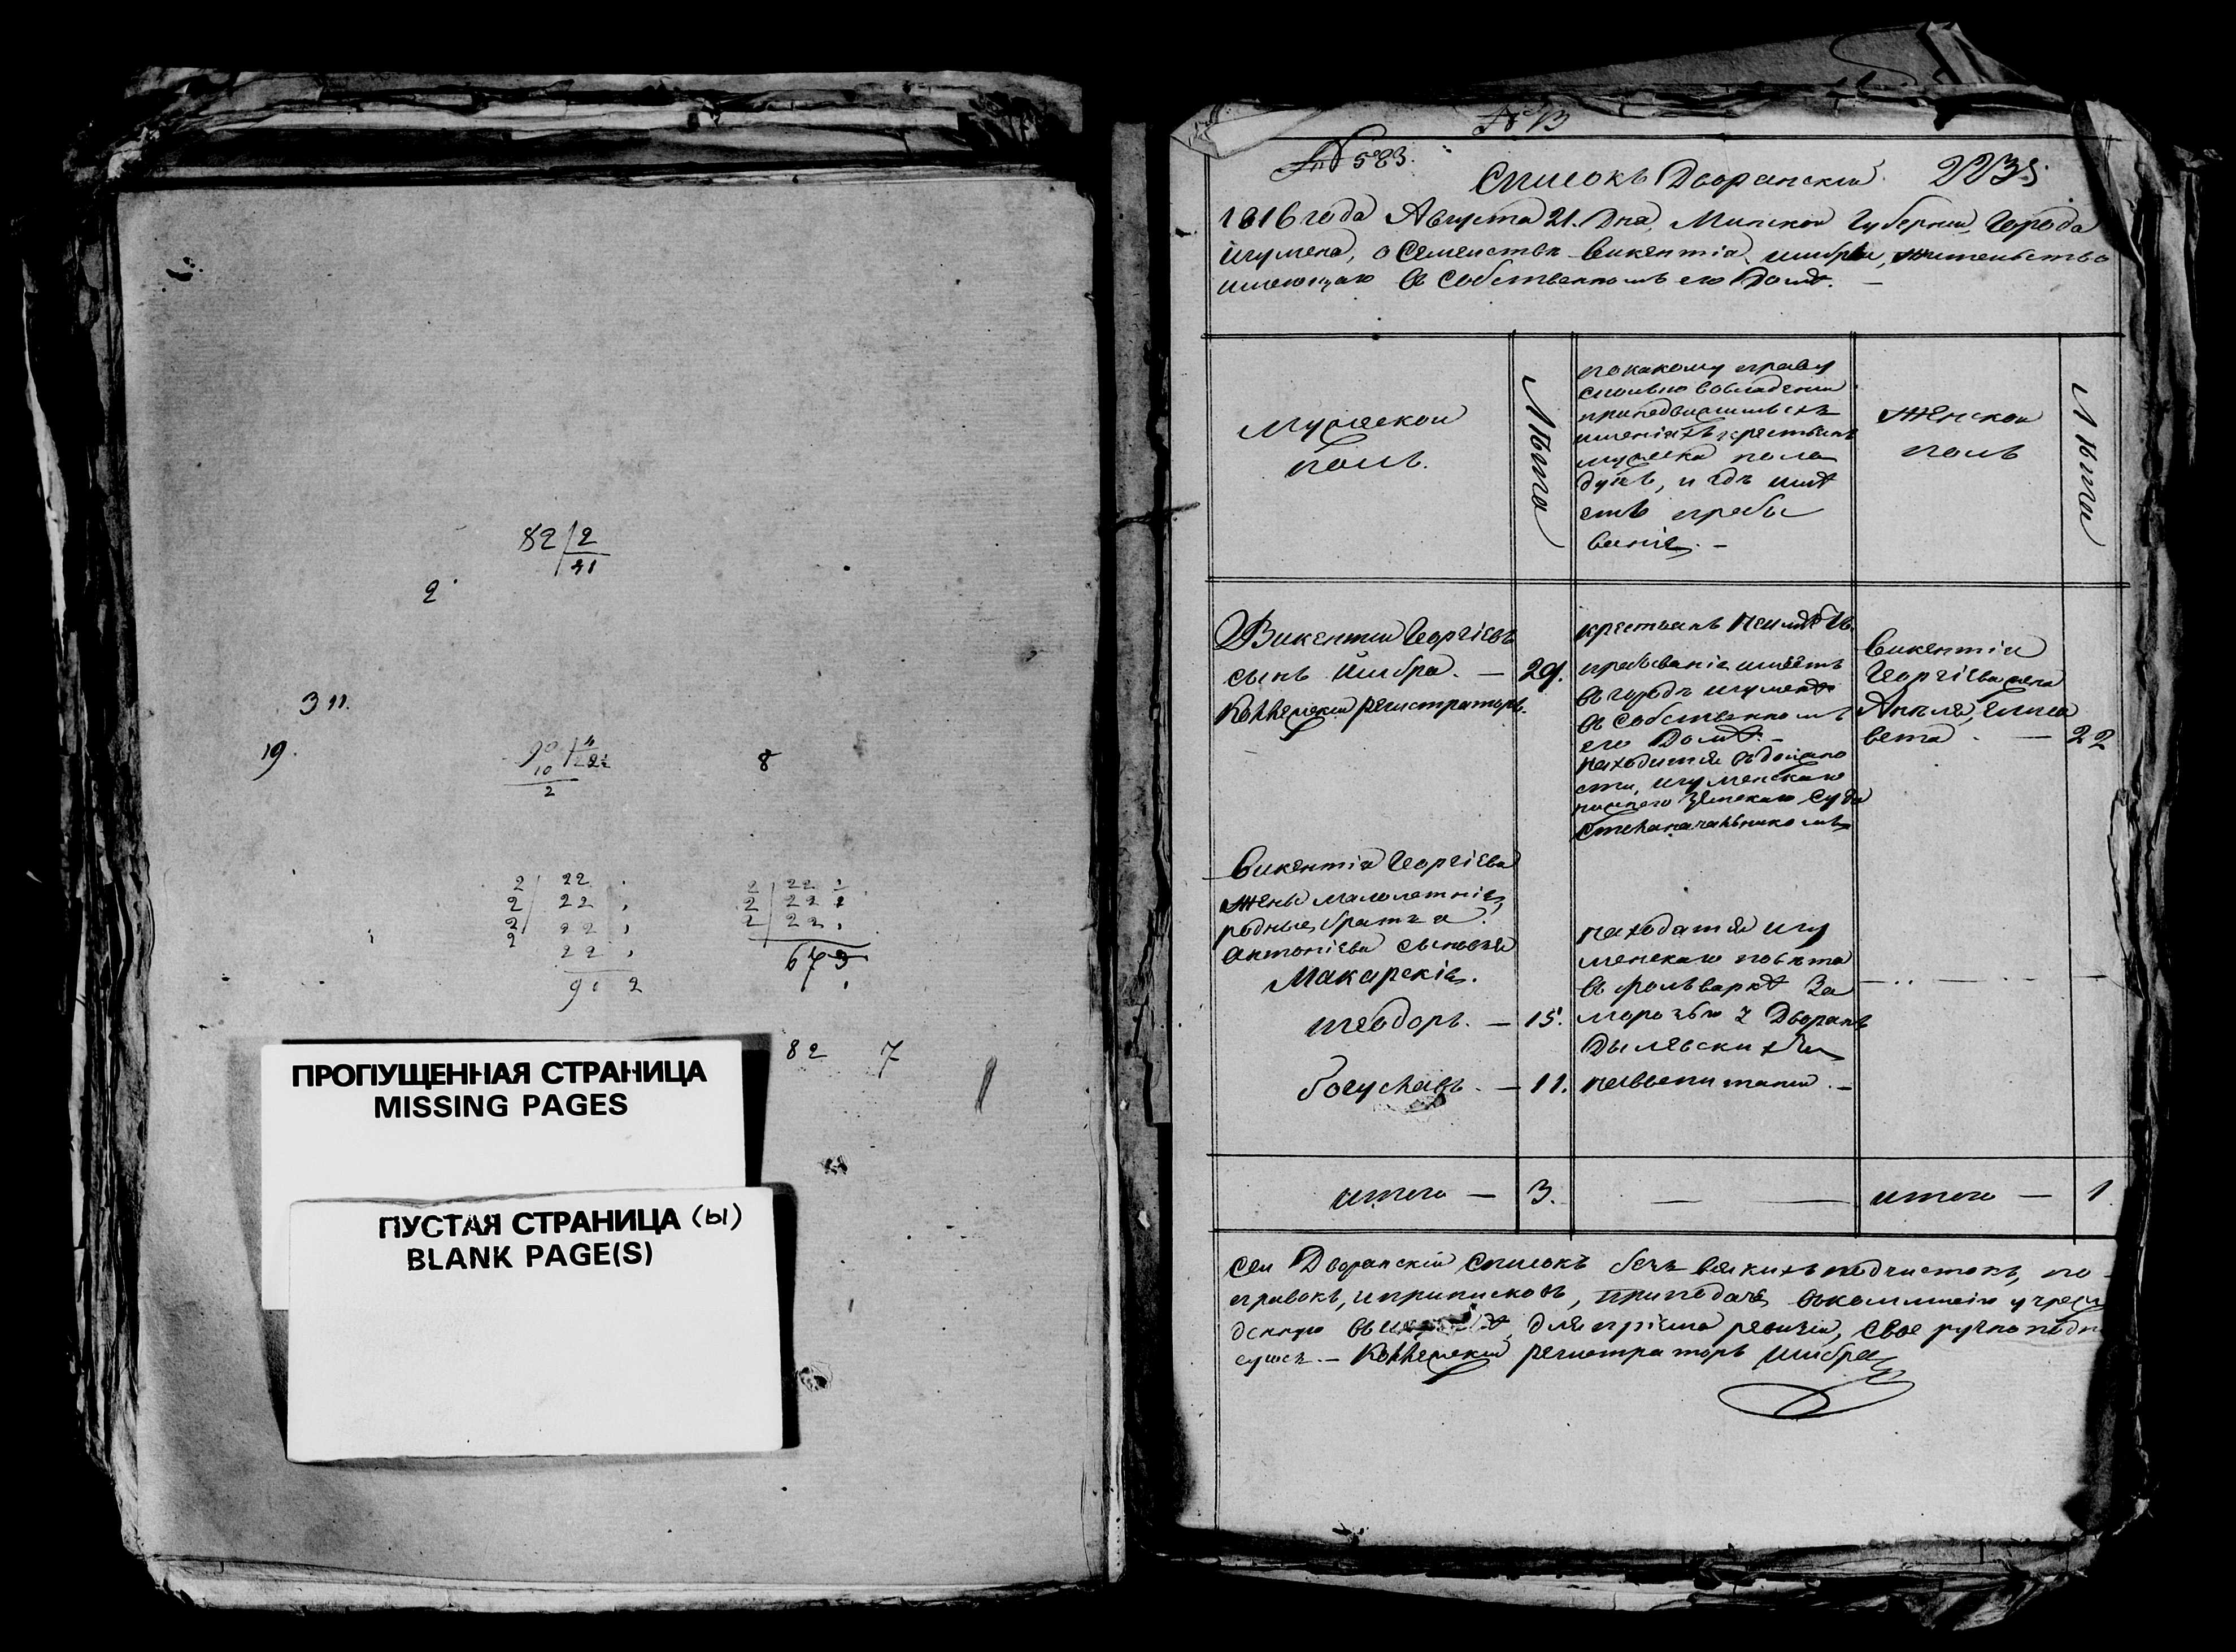 82 2
41
2
3 11.
19.
8
2 22
2 22
2 22
2 22
2 22
2 22
2 22
673
82 7
ПРОПУЩЕННАЯ СТРАНИЦА
MISSING PAGES
ПУСТАЯ СТРАНИЦА (Ы)
BLANK PAGE(S)
№ 13
№ 583.
Списокъ Дворянскій 2235
1816 года Августа 21. Дня, Минской Губерніи, Города
Игумена, о Семействѣ Викентія Шибры, жительство
имеющаго въ Собственномъ его Домѣ. —
Мужеской
полъ.
Лѣта
по какому праву
сколько во владѣніи
имѣніяхъ крестьянъ
мужеска пола
душъ, и гдѣ имѣ
етъ пребы
ваніе. —
Женской
полъ
Лѣта
Викентій Георгіевъ
сынъ Шибра. — 29.
Коллежскій регистраторъ.
крестьянъ неимѣетъ.
пребываніе имѣетъ
въ городѣ Игуменѣ
въ Собственномъ
его Домѣ. —
находится въ должно
сти, Игуменскаго
нижнего Земскаго Суда
Столоначальникомъ
Викентія
Георгіева жена
Анѣля, Елиса
вета — 22
Викентія Георгіева
жены малолетніе,
родные братья
Антоніевы сыновья
Макарскіе.
Теодоръ. — 15.
Богуславъ. — 11.
находятся Игу
менскаго повѣта
въ фольваркѣ За
Дворянъ
навоспитаніи. —
итого — 3.
итого — 1
Сей Дворянскій Списокъ безъ всякихъ подчистокъ, по
правокъ, и приписковъ, при подаче въ коммисію учреж
денную въ для пріема ревизіи, свое ручно подпи
суюсь. — Коллежскій регистраторъ Шибра